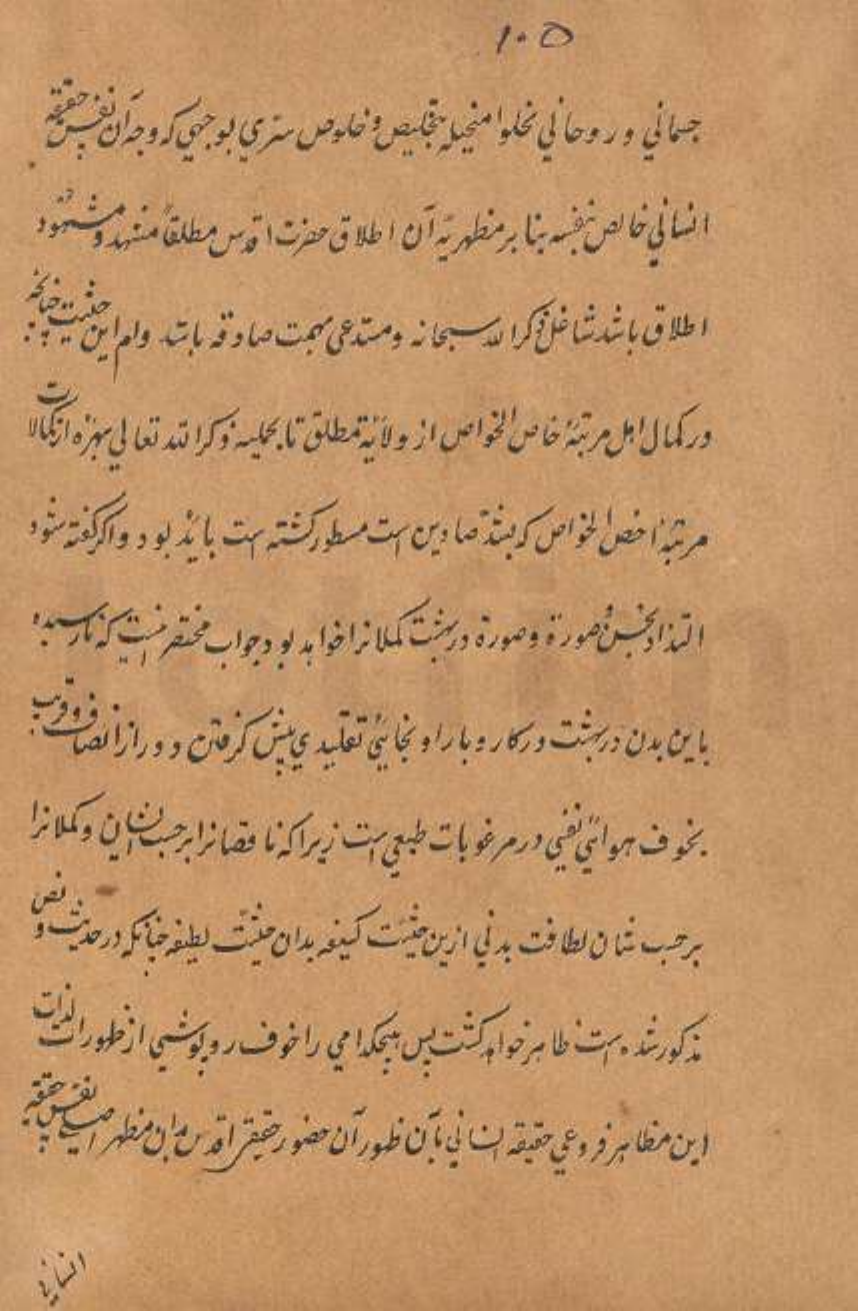 ۱۰۵
جسمانی و روحانی بخلوا منحیله بتخلیص و خلوص سری بوجهی که وجه آن نفس حقیقه
انسانی خالص بنفسه بنا بر مظهریة آن اطلاق حضرت اقدس مطلقاً مشهد و مشهود
اطلاق باشد شاغل ذکر الله سبحانه و مستدعی مهمت صادقه باشد وام این حیثیت چنانچه
در کمال اهل مرتبۀ خاص الخواص از ولایة مطلق تا بحلیه ذکر الله تعالی بهره از کمالات
مرتبۀ اخص الخواص که است مسطور گشته است باید بود و اگر گفته شود
التذاذ بحسن و صورة و صورة در بهشت کملانرا خواهد بود جواب مختصر اینست که نارسیده
باین بدن در بهشت در کار و بار او تقلیدی پیش گرفتن دور از انصاف و قریب
بخوف هوائی نفسی در مرغوبات طبعی است زیرا که ناقصانرا برحسب شان این و کملانرا
برحسب شان لطافت بدنی ازین حیثیت کثیفه بدان حیثیت لطیفه چنانکه در حدیث و نص
مذکور شده است ظاهر خواهد گشت پس هیچکدامی را خوف روپوشی از ظهورات لذات
این مظاهر فروعی حقیقه انسانی بآن ظهور آن حضور حقیقی اقدس بدان مظهر اصلی نفس حقیقه
انسانی